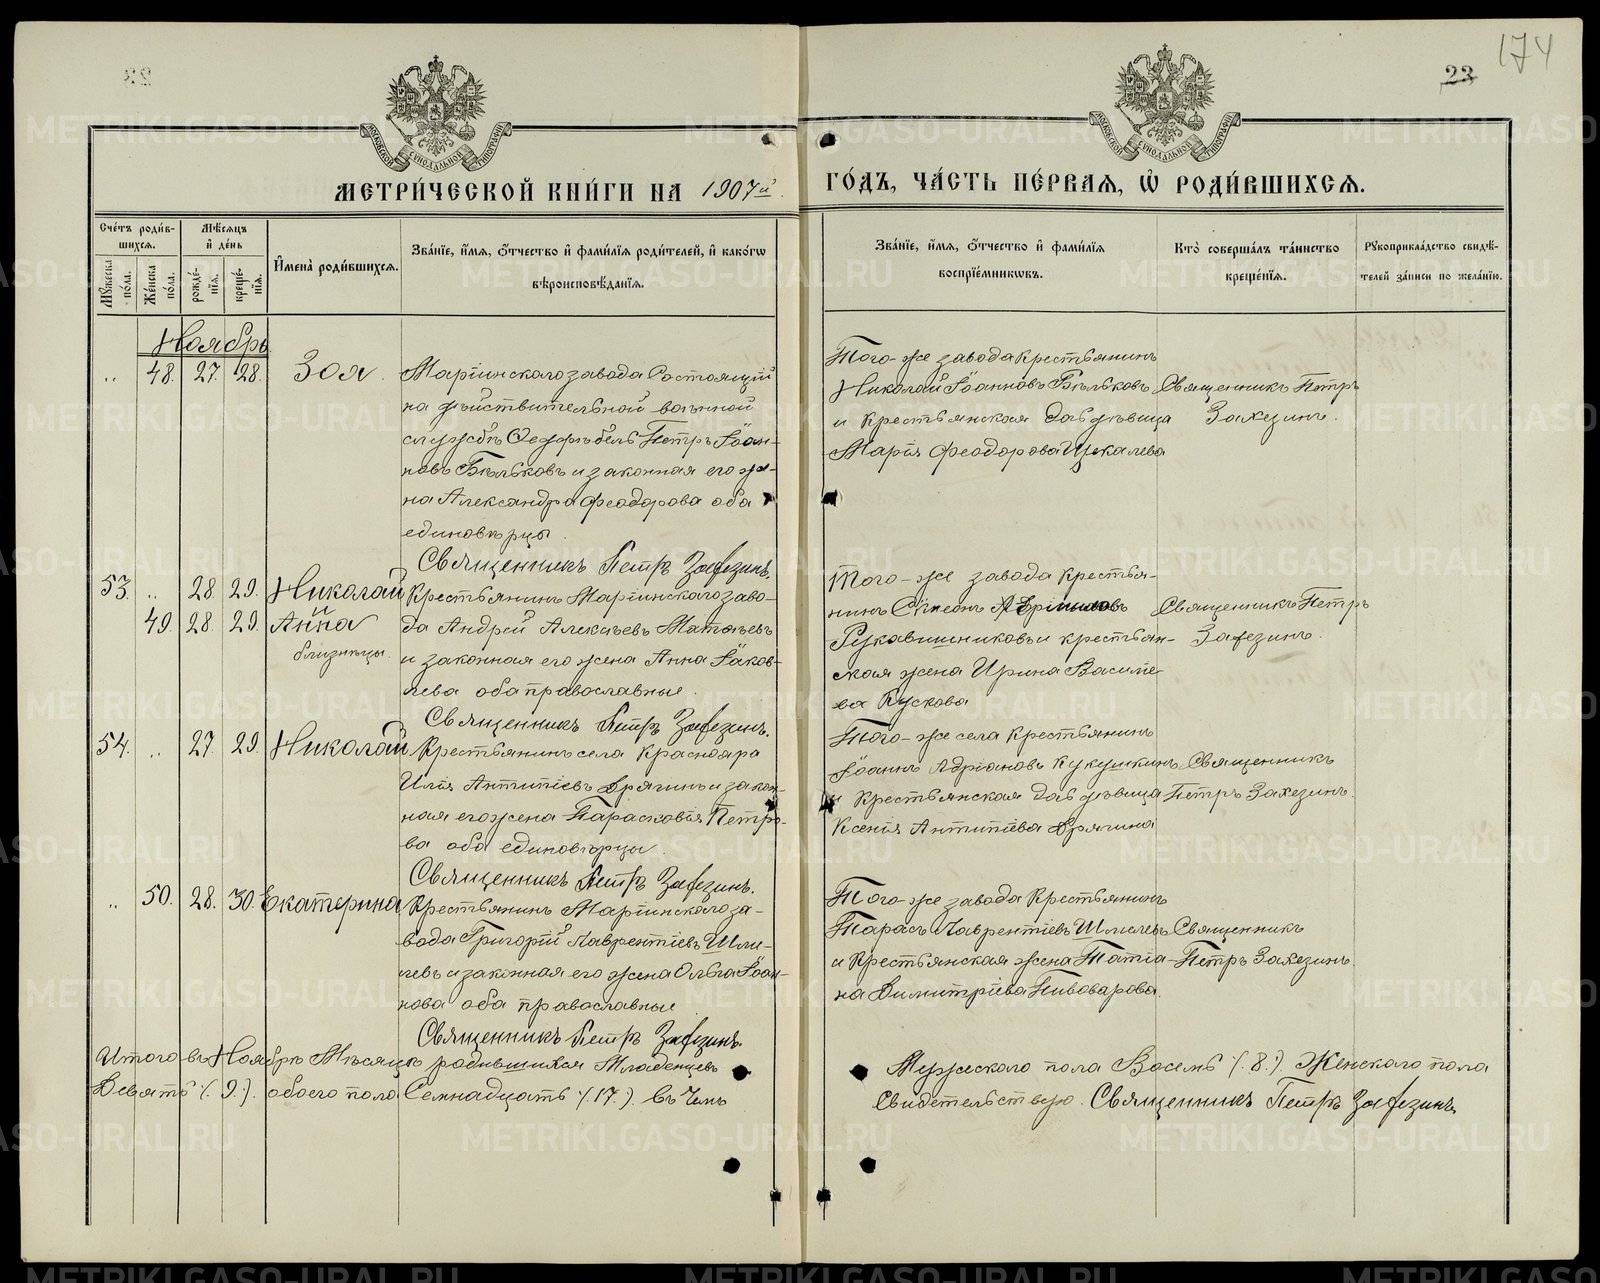 174
23
МЕТРИ́ЧЕСКОЙ КНИ́ГИ НА 1907й
ГО́ДЪ, ЧА́СТЬ ПЕ́РВАЯ, Ѡ҆ РОДИ́ВШИХСЯ.
Сче́тъ роди́вшихся.
Мꙋ́жеска по́ла.
Же́нска по́ла.
Мѣ́сяцъ и҆ де́нь
рожде́нїя.
креще́нїя.
И҆мена̀ роди́вшихся.
Зва́нїе, и҆́мя, ѻ҆́тчество и҆ фами́лїя роди́телей, и҆ како́гѡ
вѣроисповѣ́данїя.
Зва́нїе, и҆́мя, ѻ҆́тчество и҆ фами́лїя
воспрїе́мникѡвъ.
Кто̀ соверша́лъ та́инство
креще́нїя.
Рꙋкоприкла́дство свидѣ́-
телей за́писи по жела́нїю.
Ноябрь
" 48. 27. 28. Зоя.
Маріинскаго завода Состоящій
на дѣйствительной военной
службѣ Фельдфебель Петръ Іоан-
новъ Бѣльковъ и законная его же-
на Александра Феодорова оба
единовѣрцы.
Священникъ Петръ Захезинъ.
Того-же завода крестьянинъ
Николай Іоанновъ Бѣльковъ
и крестьянская дѣвица
Марія Феодорова
Священникъ Петръ
Захезинъ.
53. " 28. 29. Николай
49. 28. 29. Анна
близнецы.
Крестьянинъ Маріинскаго заво-
да Андрей Алексѣевъ Матвѣевъ
и законная его жена Анна Іаков-
лева оба православные.
Священникъ Петръ Захезинъ.
Того-же завода крестья-
нинъ Симеонъ
Рукавишниковъ и крестьян-
ская жена Ирина Василье-
ва Кускова
Священникъ Петръ
Захезинъ.
54. " 27. 29. Николай
Крестьянинъ села Краснояра
Илія Антипіевъ Дрягинъ и закон-
ная его жена Парасковія Петро-
ва оба единовѣрцы.
Священникъ Петръ Захезинъ.
Того-же села крестьянинъ
Іоаннъ Адріановъ Кукушкинъ
и крестьянская дѣвица
Ксенія Антипіева Дрягина
Священникъ
Петръ Захезинъ.
" 50. 28. 30. Екатерина
Крестьянинъ Маріинскаго за-
вода Григорій Лаврентіевъ Шми-
левъ и законная его жена Ольга Іоан-
нова оба православные
Священникъ Петръ Захезинъ.
Того-же завода крестьянинъ
Тарасъ Лаврентіевъ Шмелевъ
и крестьянская жена Татіа-
на Димитріева Пивоварова.
Священникъ
Петръ Захезинъ.
Итого въ Ноябрѣ Мѣсяцѣ родившихся Младенцевъ Мужескаго пола Восемь (.8.). Женскаго пола
Девять (.9.). обоего пола Семнадцать (.17.). въ чемъ Свидетельствую. Священникъ Петръ Захезинъ.
METRIKI.GASO-URAL.RU